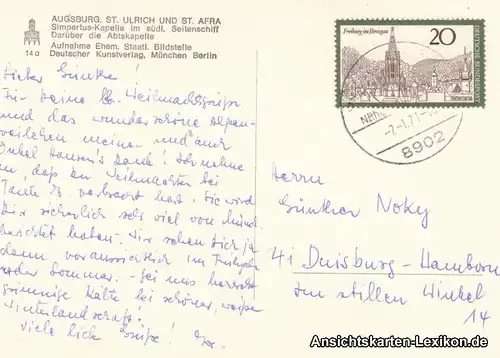 AUGSBURG. ST. ULRICH UND ST. AFRA
Simpertus-Kapelle im südl. Seitenschiff
Darüber die Abtskapelle
14 a
Aufnahme Ehem. Staatl. Bildstelle
Deutscher Kunstverlag, München Berlin
Freiburg im Breisgau
20
DEUTSCHE BUNDESPOST
8902
Lieber Günther!
Für Deine lb. Weihnachtsgrüße
und das wunderschöne Alpen-
veilchen meinen und auch
Onkel Dank! Ich nehme
an, daß Du Weihnachten bei
Tante verbracht hast. Sie wird
Dir sicherlich sehr viel von
berichtet haben. Wir sehen Dich ja
dann, voraussichtlich im Frühjahr
oder Sommer. - Bei uns herrscht
grimmige Kälte bei schöner, weißer
Winterlandschaft!
Viele lieb. Grüße!
Herrn
Günther Noky
41 Duisburg-Hamborn
Im stillen Winkel
14
Ansichtskarten-Lexikon.de